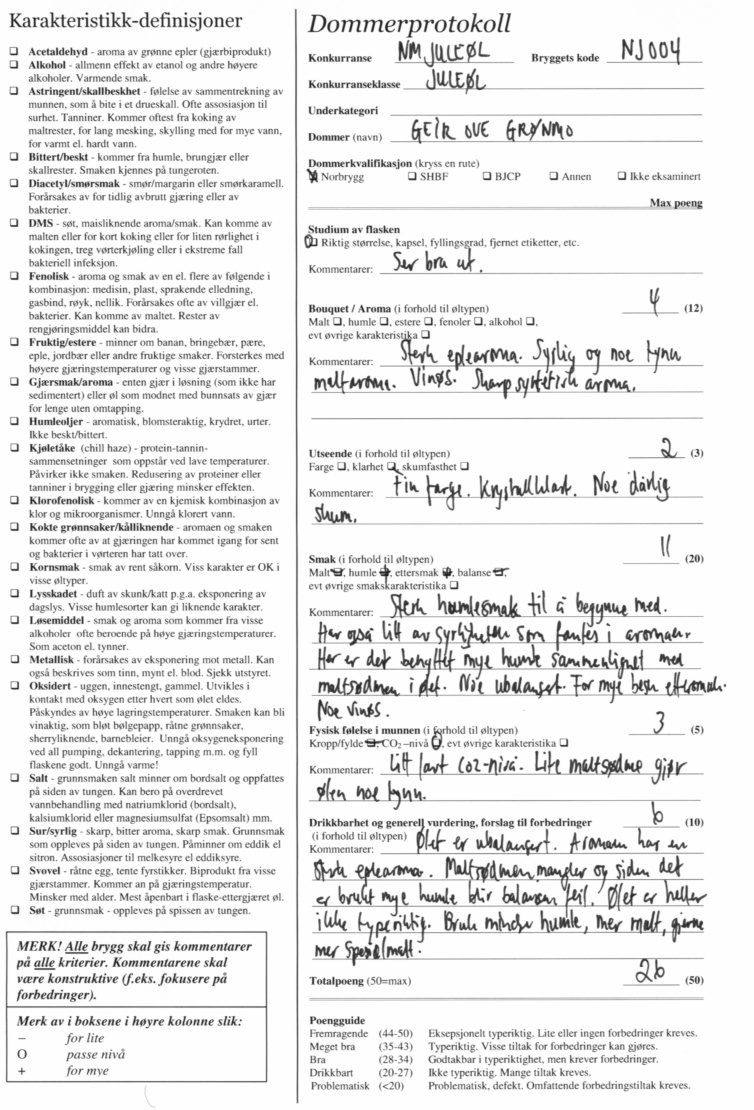 Karakteristikk-definisjoner
❏ Acetaldehyd - aroma av grønne epler (gjærbiprodukt)
❏ Alkohol - allmenn effekt av etanol og andre høyere
alkoholer. Varmende smak.
❏ Astringent/skallbeskhet - følelse av sammentrekning av
munnen, som å bite i et drueskall. Ofte assosiasjon til
surhet. Tanniner. Kommer oftest fra koking av
maltrester, for lang mesking, skylling med for mye vann,
for varmt el. hardt vann.
❏ Bittert/beskt - kommer fra humle, brungjær eller
skallrester. Smaken kjennes på tungeroten.
❏ Diacetyl/smørsmak - smør/margarin eller smørkaramell.
Forårsakes av for tidlig avbrutt gjæring eller av
bakterier.
❏ DMS - søt, maisliknende aroma/smak. Kan komme av
malten eller for kort koking eller for liten rørlighet i
kokingen, treg vørterkjøling eller i ekstreme fall
bakteriell infeksjon.
❏ Fenolisk - aroma og smak av en el. flere av følgende i
kombinasjon: medisin, plast, sprakende elledning,
gasbind, røyk, nellik. Forårsakes ofte av villgjær el.
bakterier. Kan komme av maltet. Rester av
rengjøringsmiddel kan bidra.
❏ Fruktig/estere - minner om banan, bringebær, pære,
eple, jordbær eller andre fruktige smaker. Forsterkes med
høyere gjæringstemperaturer og visse gjærstammer.
❏ Gjærsmak/aroma - enten gjær i løsning (som ikke har
sedimentert) eller øl som modnet med bunnsats av gjær
for lenge uten omtapping.
❏ Humleoljer - aromatisk, blomsteraktig, krydret, urter.
Ikke beskt/bittert.
❏ Kjøletåke (chill haze) - protein-tannin-
sammensetninger som oppstår ved lave temperaturer.
Påvirker ikke smaken. Redusering av proteiner eller
tanniner i brygging eller gjæring minsker effekten.
❏ Klorofenolisk - kommer av en kjemisk kombinasjon av
klor og mikroorganismer. Unngå klorert vann.
❏ Kokte grønnsaker/kålliknende - aromaen og smaken
kommer ofte av at gjæringen har kommet igang for sent
og bakterier i vørteren har tatt over.
❏ Kornsmak - smak av rent såkorn. Viss karakter er OK i
visse øltyper.
❏ Lysskadet - duft av skunk/katt p.g.a. eksponering av
dagslys. Visse humlesorter kan gi liknende karakter.
❏ Løsemiddel - smak og aroma som kommer fra visse
alkoholer ofte beroende på høye gjæringstemperaturer.
Som aceton el. tynner.
❏ Metallisk - forårsakes av eksponering mot metall. Kan
også beskrives som tinn, mynt el. blod. Sjekk utstyret.
❏ Oksidert - uggen, innestengt, gammel. Utvikles i
kontakt med oksygen etter hvert som ølet eldes.
Påskyndes av høye lagringstemperaturer. Smaken kan bli
vinaktig, som bløt bølgepapp, råtne grønnsaker,
sherryliknende, barnebleier. Unngå oksygeneksponering
ved all pumping, dekantering, tapping m.m. og fyll
flaskene godt. Unngå varme!
❏ Salt - grunnsmaken salt minner om bordsalt og oppfattes
på siden av tungen. Kan bero på overdrevet
vannbehandling med natriumklorid (bordsalt),
kalsiumklorid eller magnesiumsulfat (Epsomsalt) mm.
❏ Sur/syrlig - skarp, bitter aroma, skarp smak. Grunnsmak
som oppleves på siden av tungen. Påminner om eddik el
sitron. Assosiasjoner til melkesyre el eddiksyre.
❏ Svovel - råtne egg, tente fyrstikker. Biprodukt fra visse
gjærstammer. Kommer an på gjæringstemperatur.
Minsker med alder. Mest åpenbart i flaske-ettergjæret øl.
❏ Søt - grunnsmak - oppleves på spissen av tungen.
MERK! Alle brygg skal gis kommentarer
på alle kriterier. Kommentarene skal
være konstruktive (f.eks. fokusere på
forbedringer).
Merk av i boksene i høyre kolonne slik:
– for lite
O passe nivå
+ for mye
Dommerprotokoll
Konkurranse NM JULEØL Bryggets kode NJ004
Konkurranseklasse JULEØL
Underkategori
Dommer (navn) GEIR OVE GRØNMO
Dommerkvalifikasjon (kryss en rute)
☒ Norbrygg ❏ SHBF ❏ BJCP ❏ Annen ❏ Ikke eksaminert
Max poeng
Studium av flasken
❏ Riktig størrelse, kapsel, fyllingsgrad, fjernet etiketter, etc.
Kommentarer: Ser bra ut.
Bouquet / Aroma (i forhold til øltypen) 4 (12)
Malt ❏, humle ❏, estere ❏, fenoler ❏, alkohol ❏,
evt øvrige karakteristika ❏
Kommentarer: Sterk eplearoma. Syrlig og noe tynn
maltaroma. Vinøs. Skarp syntetisk aroma.
Utseende (i forhold til øltypen) 2 (3)
Farge ❏, klarhet ❏, skumfasthet ❏
Kommentarer: Fin farge. Krystallklart. Noe dårlig
skum.
Smak (i forhold til øltypen) 11 (20)
Malt ❏, humle ❏, ettersmak ❏, balanse ❏,
evt øvrige smakskarakteristika ❏
Kommentarer: Sterk humlesmak til å begynne med.
Har også litt av syrligheten som fantes i aromaen.
Her er det benyttet mye humle sammenlignet med
maltsødmen i ølet. Noe ubalansert. For mye besk ettersmak.
Noe vinøs.
Fysisk følelse i munnen (i forhold til øltypen) 3 (5)
Kropp/fylde ❏, CO2 –nivå ❏, evt øvrige karakteristika ❏
Kommentarer: Litt lavt CO2-nivå. Lite maltsødme gjør
ølen noe tynn.
Drikkbarhet og generell vurdering, forslag til forbedringer 6 (10)
(i forhold til øltypen)
Kommentarer: Ølet er ubalansert. Aromaen har en
sterk eplearoma. Maltsødmen mangler og siden det
er brukt mye humle blir balansen feil. Ølet er heller
ikke typeriktig. Bruk mindre humle, mer malt, gjerne
mer spesialmalt.
Totalpoeng (50=max) 26 (50)
Poengguide
Fremragende (44-50) Eksepsjonelt typeriktig. Lite eller ingen forbedringer kreves.
Meget bra (35-43) Typeriktig. Visse tiltak for forbedringer kan gjøres.
Bra (28-34) Godtakbar i typeriktighet, men krever forbedringer.
Drikkbart (20-27) Ikke typeriktig. Mange tiltak kreves.
Problematisk (<20) Problematisk, defekt. Omfattende forbedringstiltak kreves.